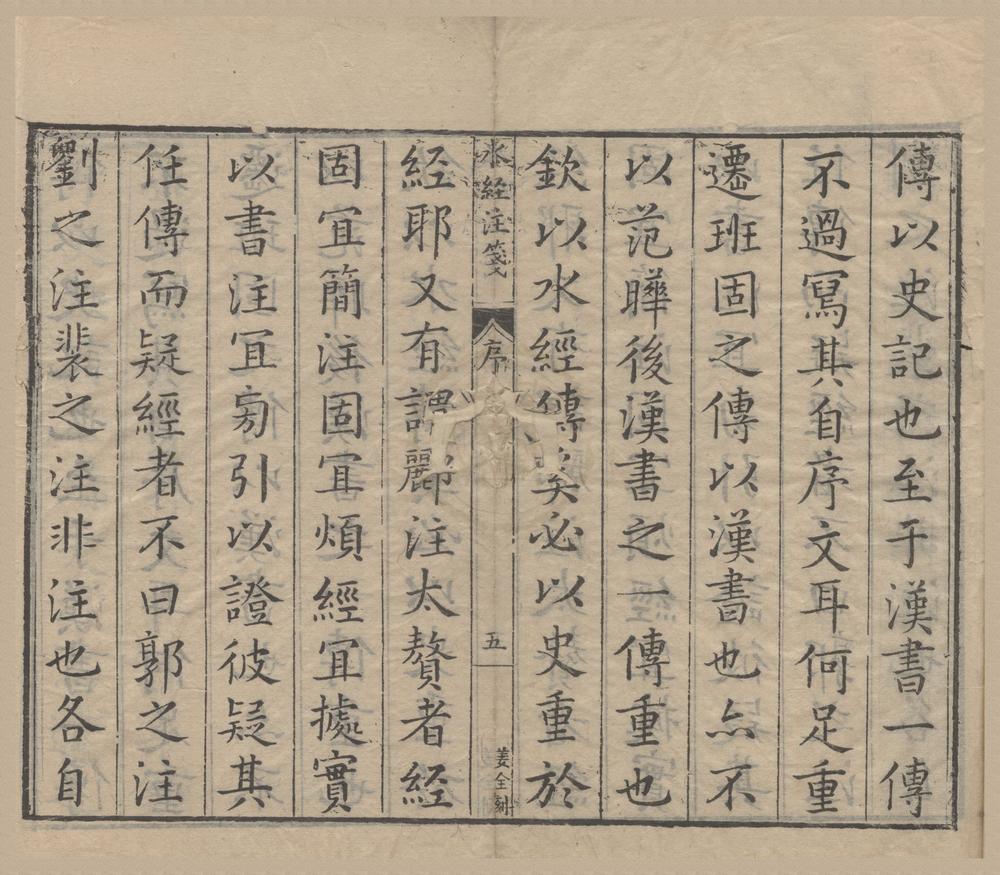 傳以史記也至于漢書一傳
不過寫其自序文耳何足重
遷班固之傳以漢書也亦不
以范曄後漢書之一傳重也
欽以水經傳矣必以史重於
水經注箋
序
五
姜全刻
經耶又有謂酈注太贅者經
固冝簡注固冝煩經冝據實
以書注冝旁引以證彼疑其
任傳而疑經者不曰郭之注
劉之注裴之注非注也各自